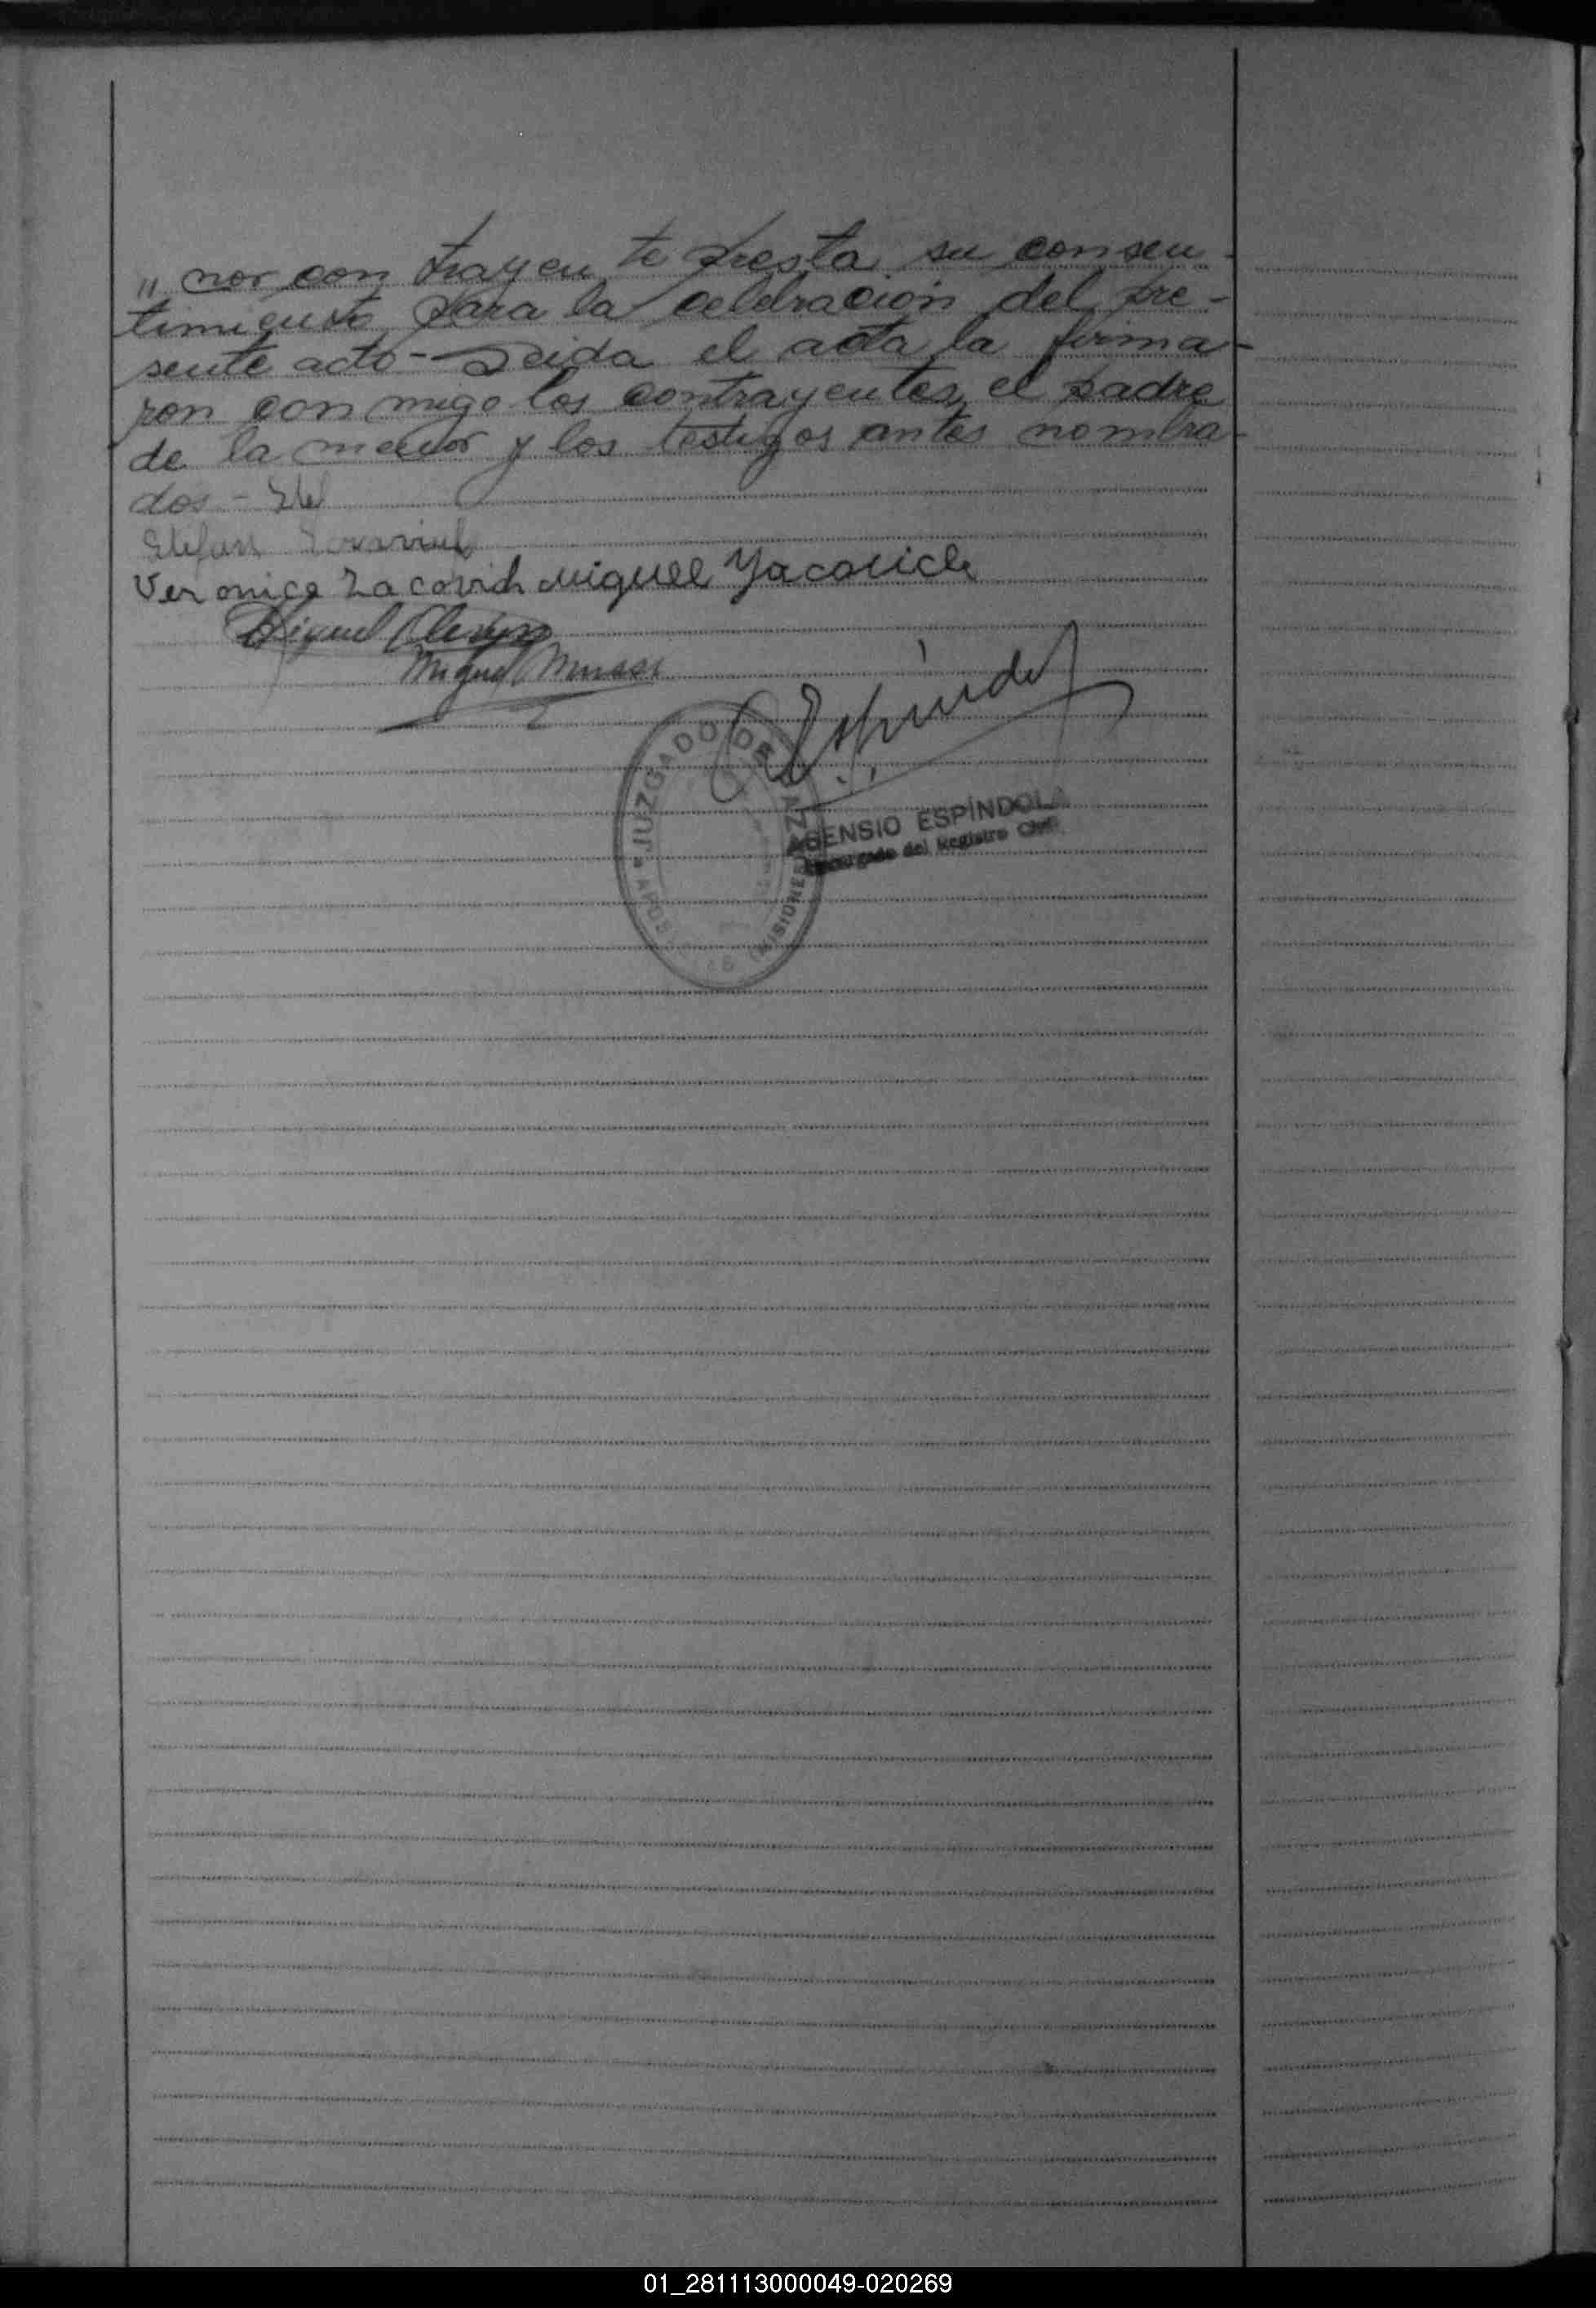 " nor con trayen te presta su consen-
timiento para la celebración del pre-
sente acto - Leida el acta la firma-
ron con migo los contrayentes, el padre
de la menor y los testigos antes nombra-
dos -
Veronica Iacovich Miguel Yacovich
Miguel
Miguel
Espíndola
JUZGADO DE PAZ
ASENSIO ESPÍNDOLA
Encargado del Registro Civil
01_281113000049-020269